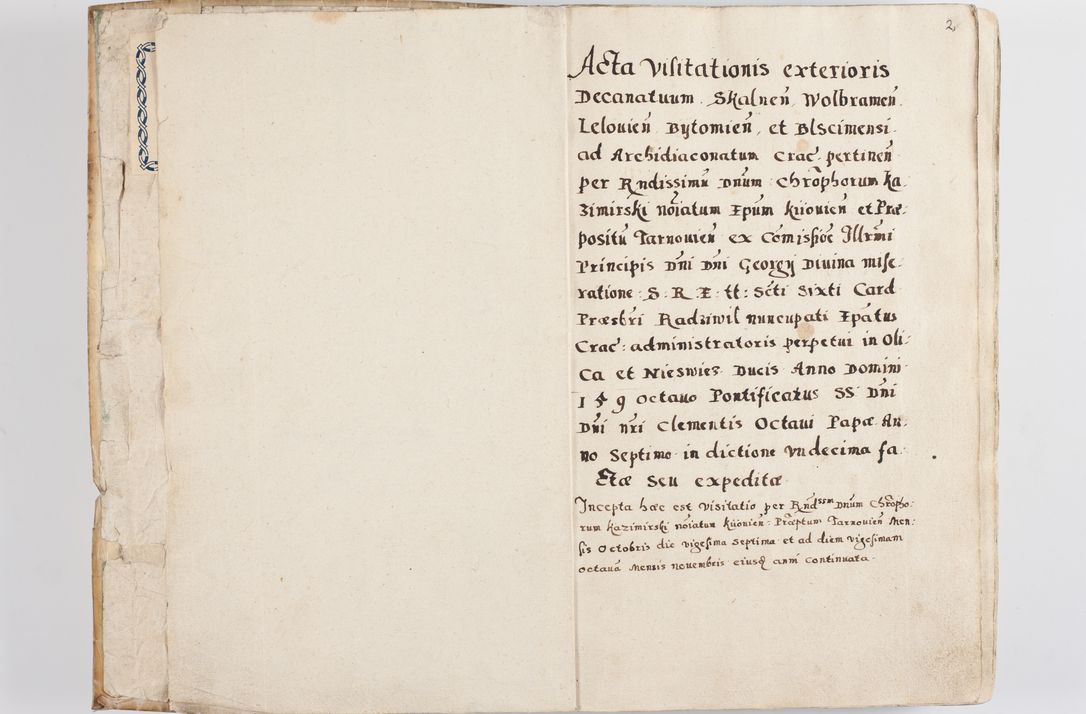 2
Acta Visitationis exterioris
Decanatuum Skalnen̄ Wolbramen̄
Lelouien̄ Bytomien̄ et Blscimensi
ad Archidiaconatum Crac: pertinen̄
per Rndissimū Dnūm Chrōphorum Ka
zimirski nōiatum Epūm Kiiouien̄ et Præ:
positū Tarnouien̄ ex Comissiōe Illrm̄i
Principis Dn̄i Dn̄i Georgij Diuina mise:
ratione S: R: E: tt: Sct̄i Sixti Card
Præsbr̄i Radziwil nuncupati Epātus
Crac: administratoris perpetui in Oli:
ca et Nieswies Ducis Anno Domini
159 octauo Pontificatus SS Dn̄i
Dn̄i nr̄i Clementis Octaui Papæ An:
no Septimo in dictione Vndecima fa
ctæ Seu expeditæ
Incepta hæc est Visitatio per Rndissm Dnūm Chrōpho:
rum Kazimirski nōiatum Kiiouien̄: Præptum Tarnouien̄ Men:
sis Octobris die vigesima Septima et ad diem vigesimam
octauā Mensis nouembris eiusq anni Continuata